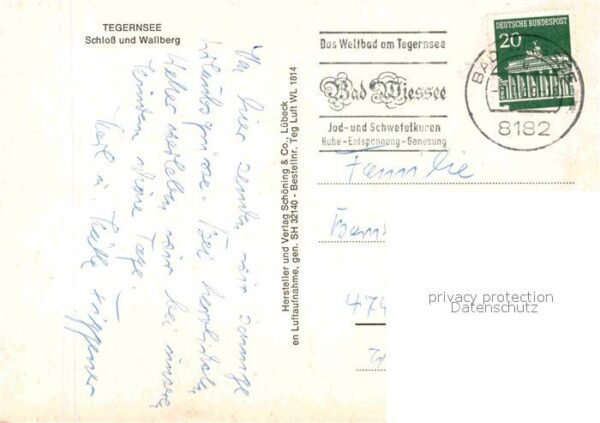 TEGERNSEE
Schloß und Wallberg
Von hier senden wir sonnige
Urlaubsgrüsse. Bei herrlichem
verleben wir bei unseren
schöne Tage.
Hersteller und Verlag Schöning & Co., Lübeck
en Luftaufnahme, gen. SH 32140 - Bestellnr. Teg Luft WL 1814
Das Weltbad am Tegernsee
Bad Wiessee
Jod- und Schwefelkuren
Ruhe - Entspannung - Genesung
DEUTSCHE BUNDESPOST
20
BAD
8182
Familie
474
privacy protection
Datenschutz